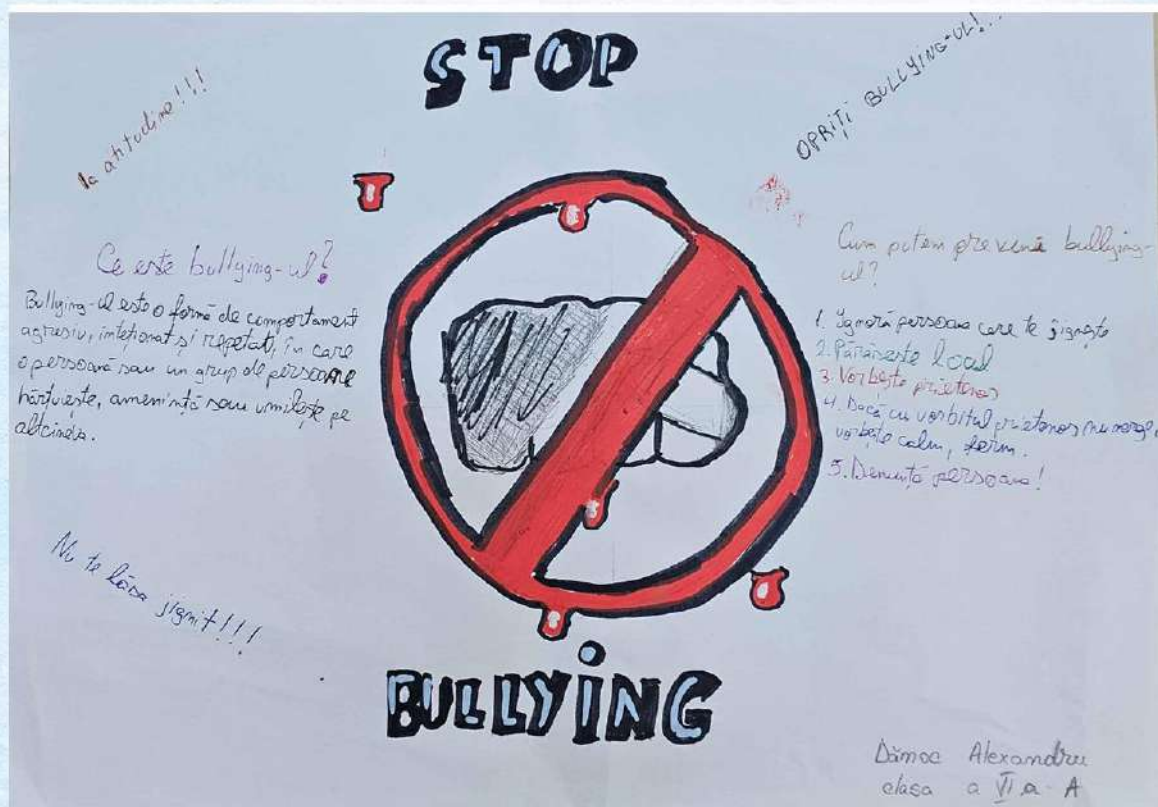 STOP
Ia atitudine!!!
OPRIȚI BULLYING-UL!...
Ce este bullying-ul?
Bullying-ul este o formă de comportament
agresiv, intenționat și repetat, în care
o persoană sau un grup de persoane
hărțuiește, amenință sau umilește pe
altcineva.
Nu te lăsa jignit!!!
Cum putem prevenii bullying-
ul?
1. Ignoră persoana care te jignește
2. Părăsește locul
3. Vorbește prietenos
4. Dacă cu vorbitul prietenos nu merge,
vorbește calm, ferm.
5. Denunță persoana!
BULLYiNG
Dămoc Alexandru
clasa a VI a - A